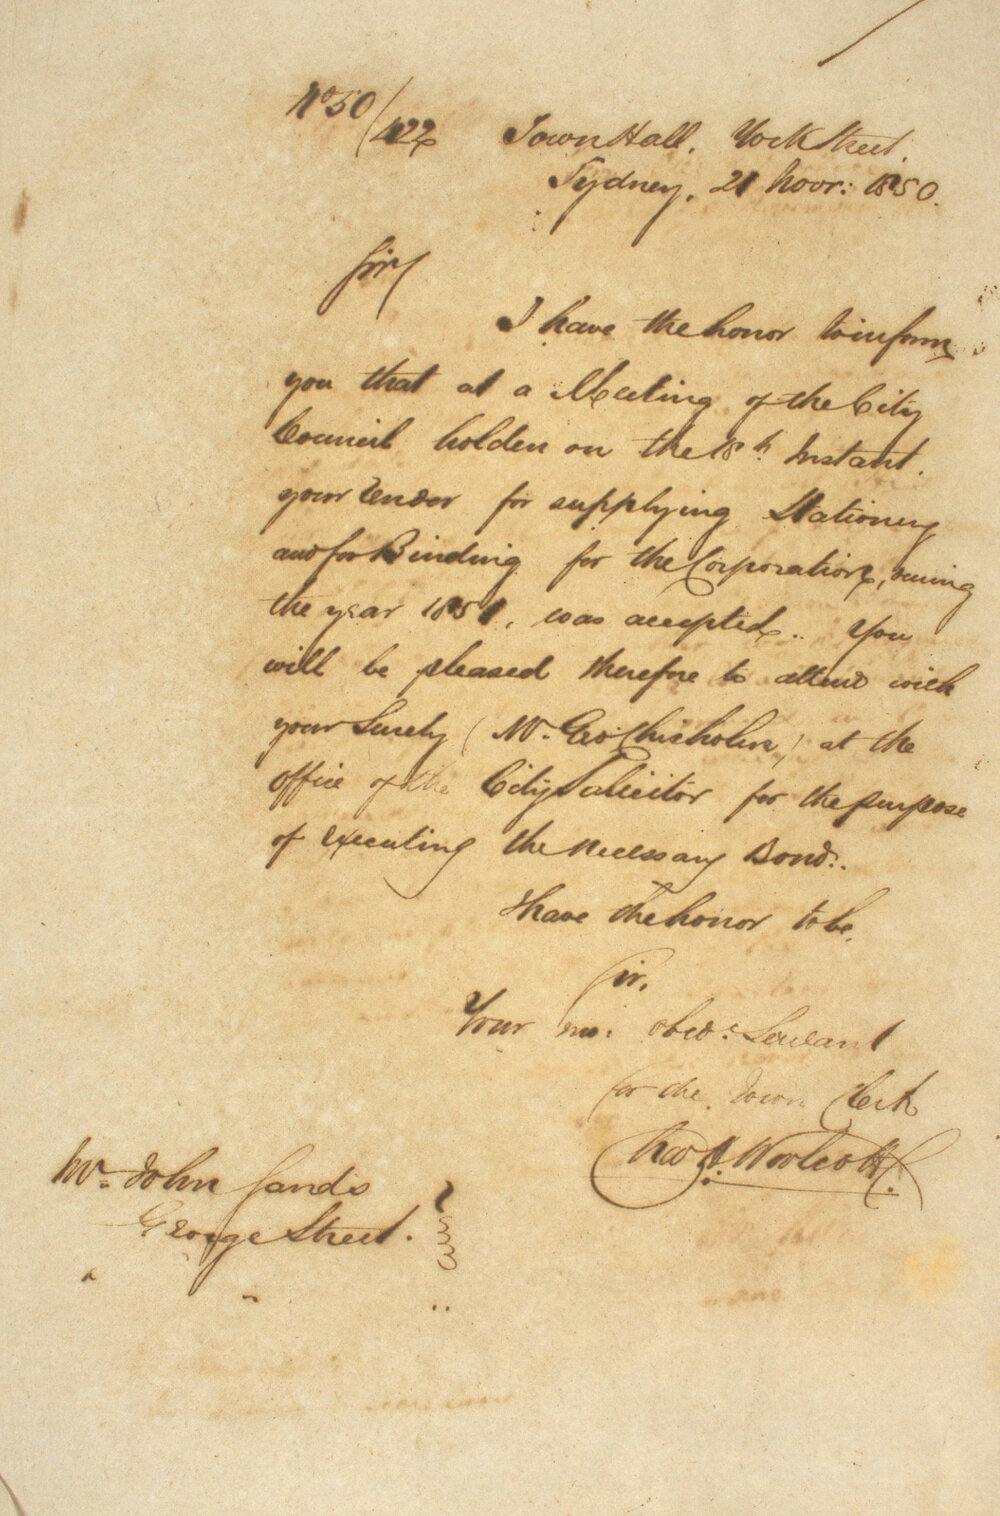 No 50/422
Town Hall, York Street,
Sydney, 21 Novr: 1850.
Sir,
I have the honor to inform
you that at a Meeting of the City
Council holden on the 18th. Instant.
your Tender for supplying Stationery
and for Binding for the Corporation, during
the year 1851, was accepted. You
will be pleased therefore to attend with
your Surety (Mr. Geo Chisholm) at the
office of the City Solicitor for the purpose
of executing the necessary Bond.
I have the honor to be,
Sir,
Your mo: obedt: Servant
for the Town Clerk
Woolcott
Mr. John Sands
George Street.